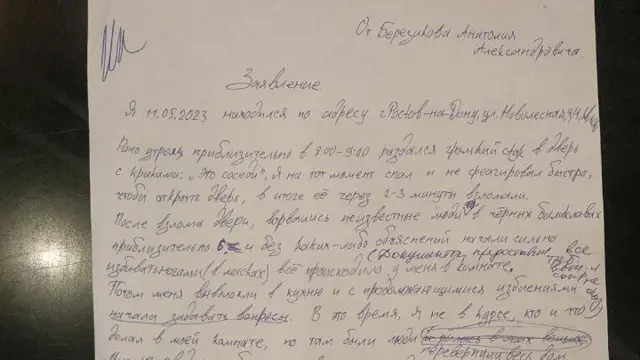 От Березикова Анатолия
Александровича.
Заявление
Я 11.05.2023 находился по адресу г.Ростов-на-Дону, ул. Новолесная,
Рано утром, приблизительно в 8:00-9:00 раздался громкий стук в дверь
с криками: "Это соседи", я на тот момент спал и не среагировал быстро,
чтобы открыть дверь, в итоге её через 2-3 минуты взломали.
После взлома двери, ворвались неизвестные люди в чёрных балаклавах
приблизительно и без каких-либо объяснений начали сильно
(Документы предоставили, все
избивать ногами (в масках) всё происходило у меня в комнате,
Потом меня выволокли в кухню и с продолжающимися избиениями
начали задавать вопросы. В это время, я не в курсе, кто и что
делал в моей комнате, но там были люди
перевертили весь дом